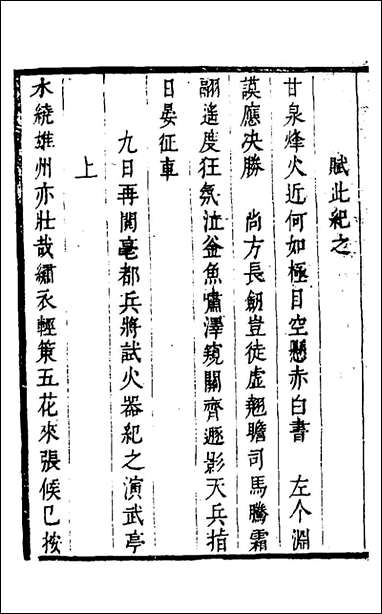 賦此紀之
甘泉烽火近何如極目空懸赤白書　左个淵
謨應决勝　尚方長劒豈徒虚翹瞻司馬騰霜
翮遥度狂氛泣釡魚嘯澤窺關齊遯影天兵指
日晏征車
九日再閲亳都兵將試火器紀之演武亭
上
水繞雄州亦壯哉繡衣輕策五花來張候已按